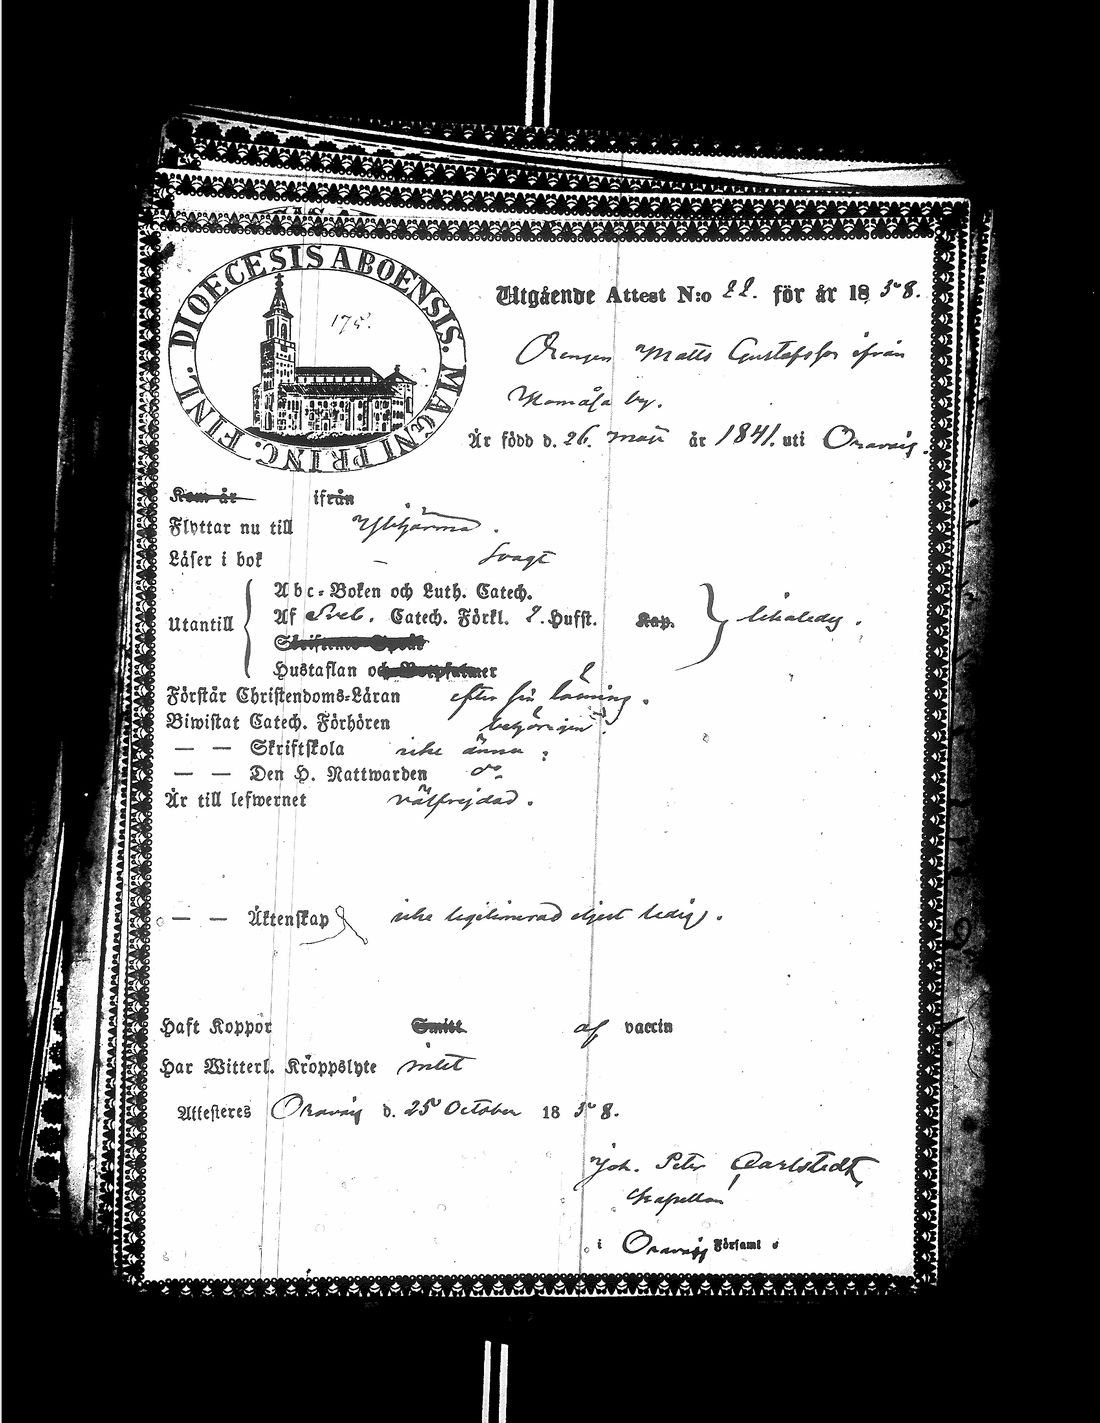 DIOECESIS ABOENSIS. MAGNI PRINC. FINL.
175.
Utgående Attest N:o 22. för år 1858.
Drengen Matts Gustafsson ifrån
Komåsa by.
Är född d. 26. Maii år 1841. uti Oravais.
Kom år ifrån
Flyttar nu till Ylihärmä.
Läser i bok - svagt
Abc-Boken och Luth. Catech.
Utantill Af Sveb. Catech. Förkl. 2. Hufst. Kap. likaledes.
Hustaflan och Botpsalmer
Förstår Christendoms-Läran efter sin läsning.
Biwistat Catech. Förhören behörigen.
— — Skriftskola icke ännu;
— — Den H. Nattwarden do.
Är till lefwernet välfrejdad.
— — Äktenskap icke legitimerad eljest ledig.
Haft Koppor Smitt. af vaccin
Har Witterl. Kroppslyte intet
Attesteres Oravais d. 25 October 1858.
Joh. Peter Carlstedt,
Kapellan
i Oravais Församl.